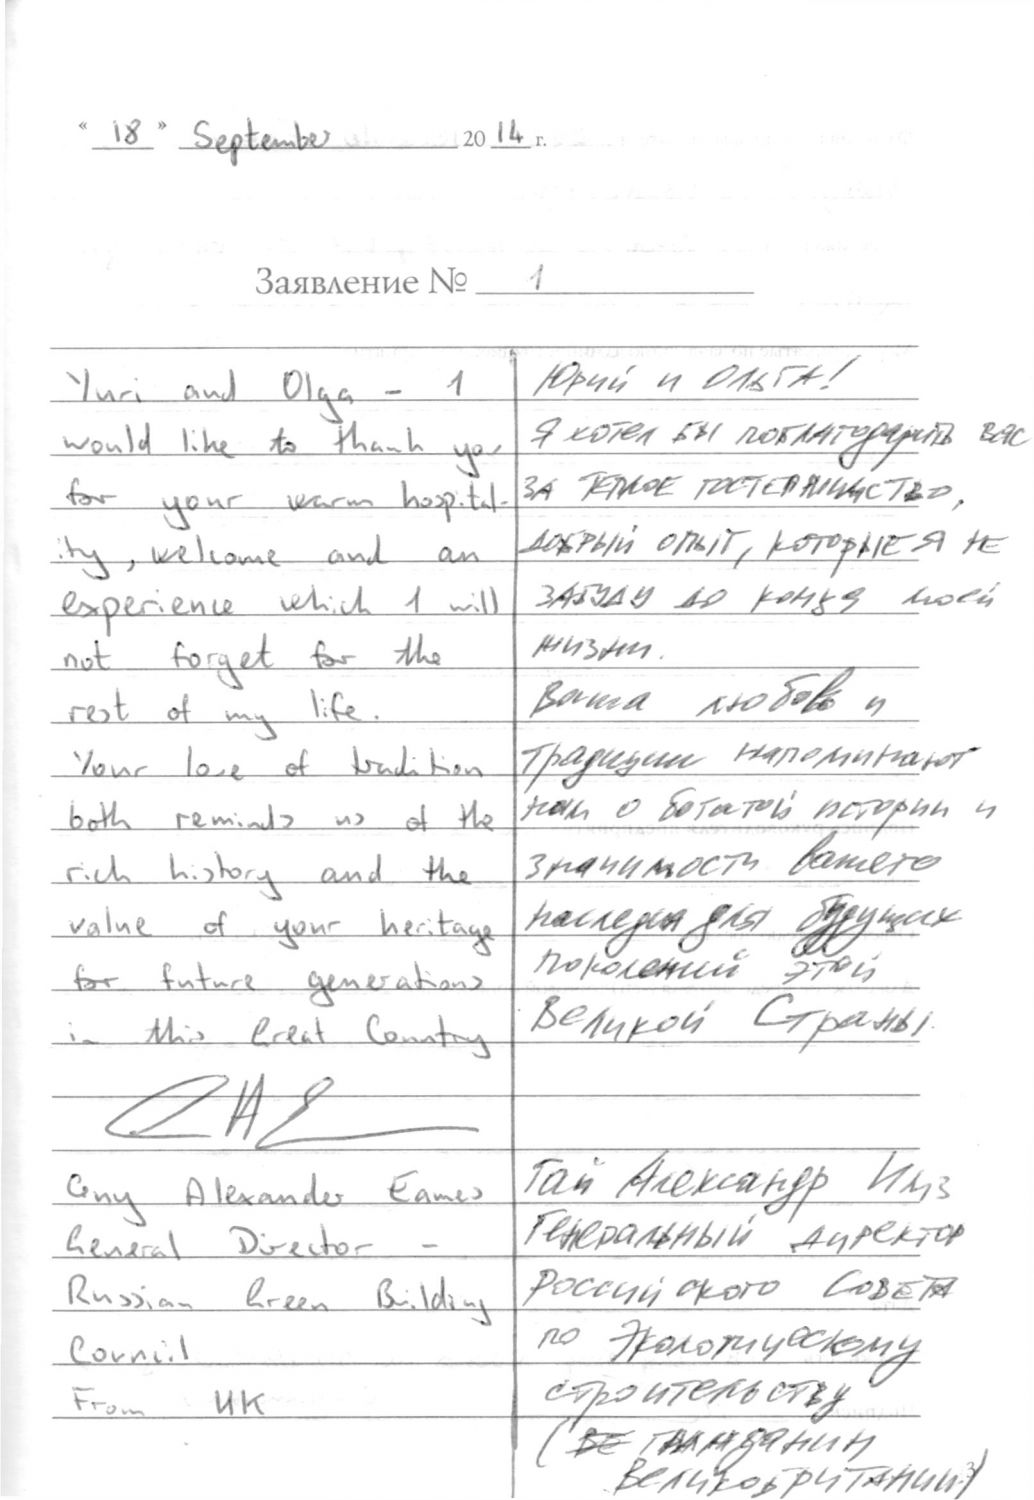 “ 18 ” September 2014 г.
Заявление № 1
Yuri and Olga - I
would like to thank you
for your warm hospital-
ity, welcome and an
experience which I will
not forget for the
rest of my life.
Your love of tradition
both reminds us of the
rich history and the
value of your heritage
for future generations
in this Great Country
Guy Alexander Eames
General Director -
Russian Green Building
Council
From UK
Юрий и Ольга!
Я хотел бы поблагодарить вас
за теплое гостеприимство,
добрый опыт, которые я не
забуду до конца моей
жизни.
Ваша любовь и
традиции напоминают
нам о богатой истории и
значимости вашего
наследия для будущих
поколений этой
Великой Страны.
Гай Александр Имз
Генеральный директор
Российского Совета
по Экологическому
строительству
( гражданин
Великобритании)
3